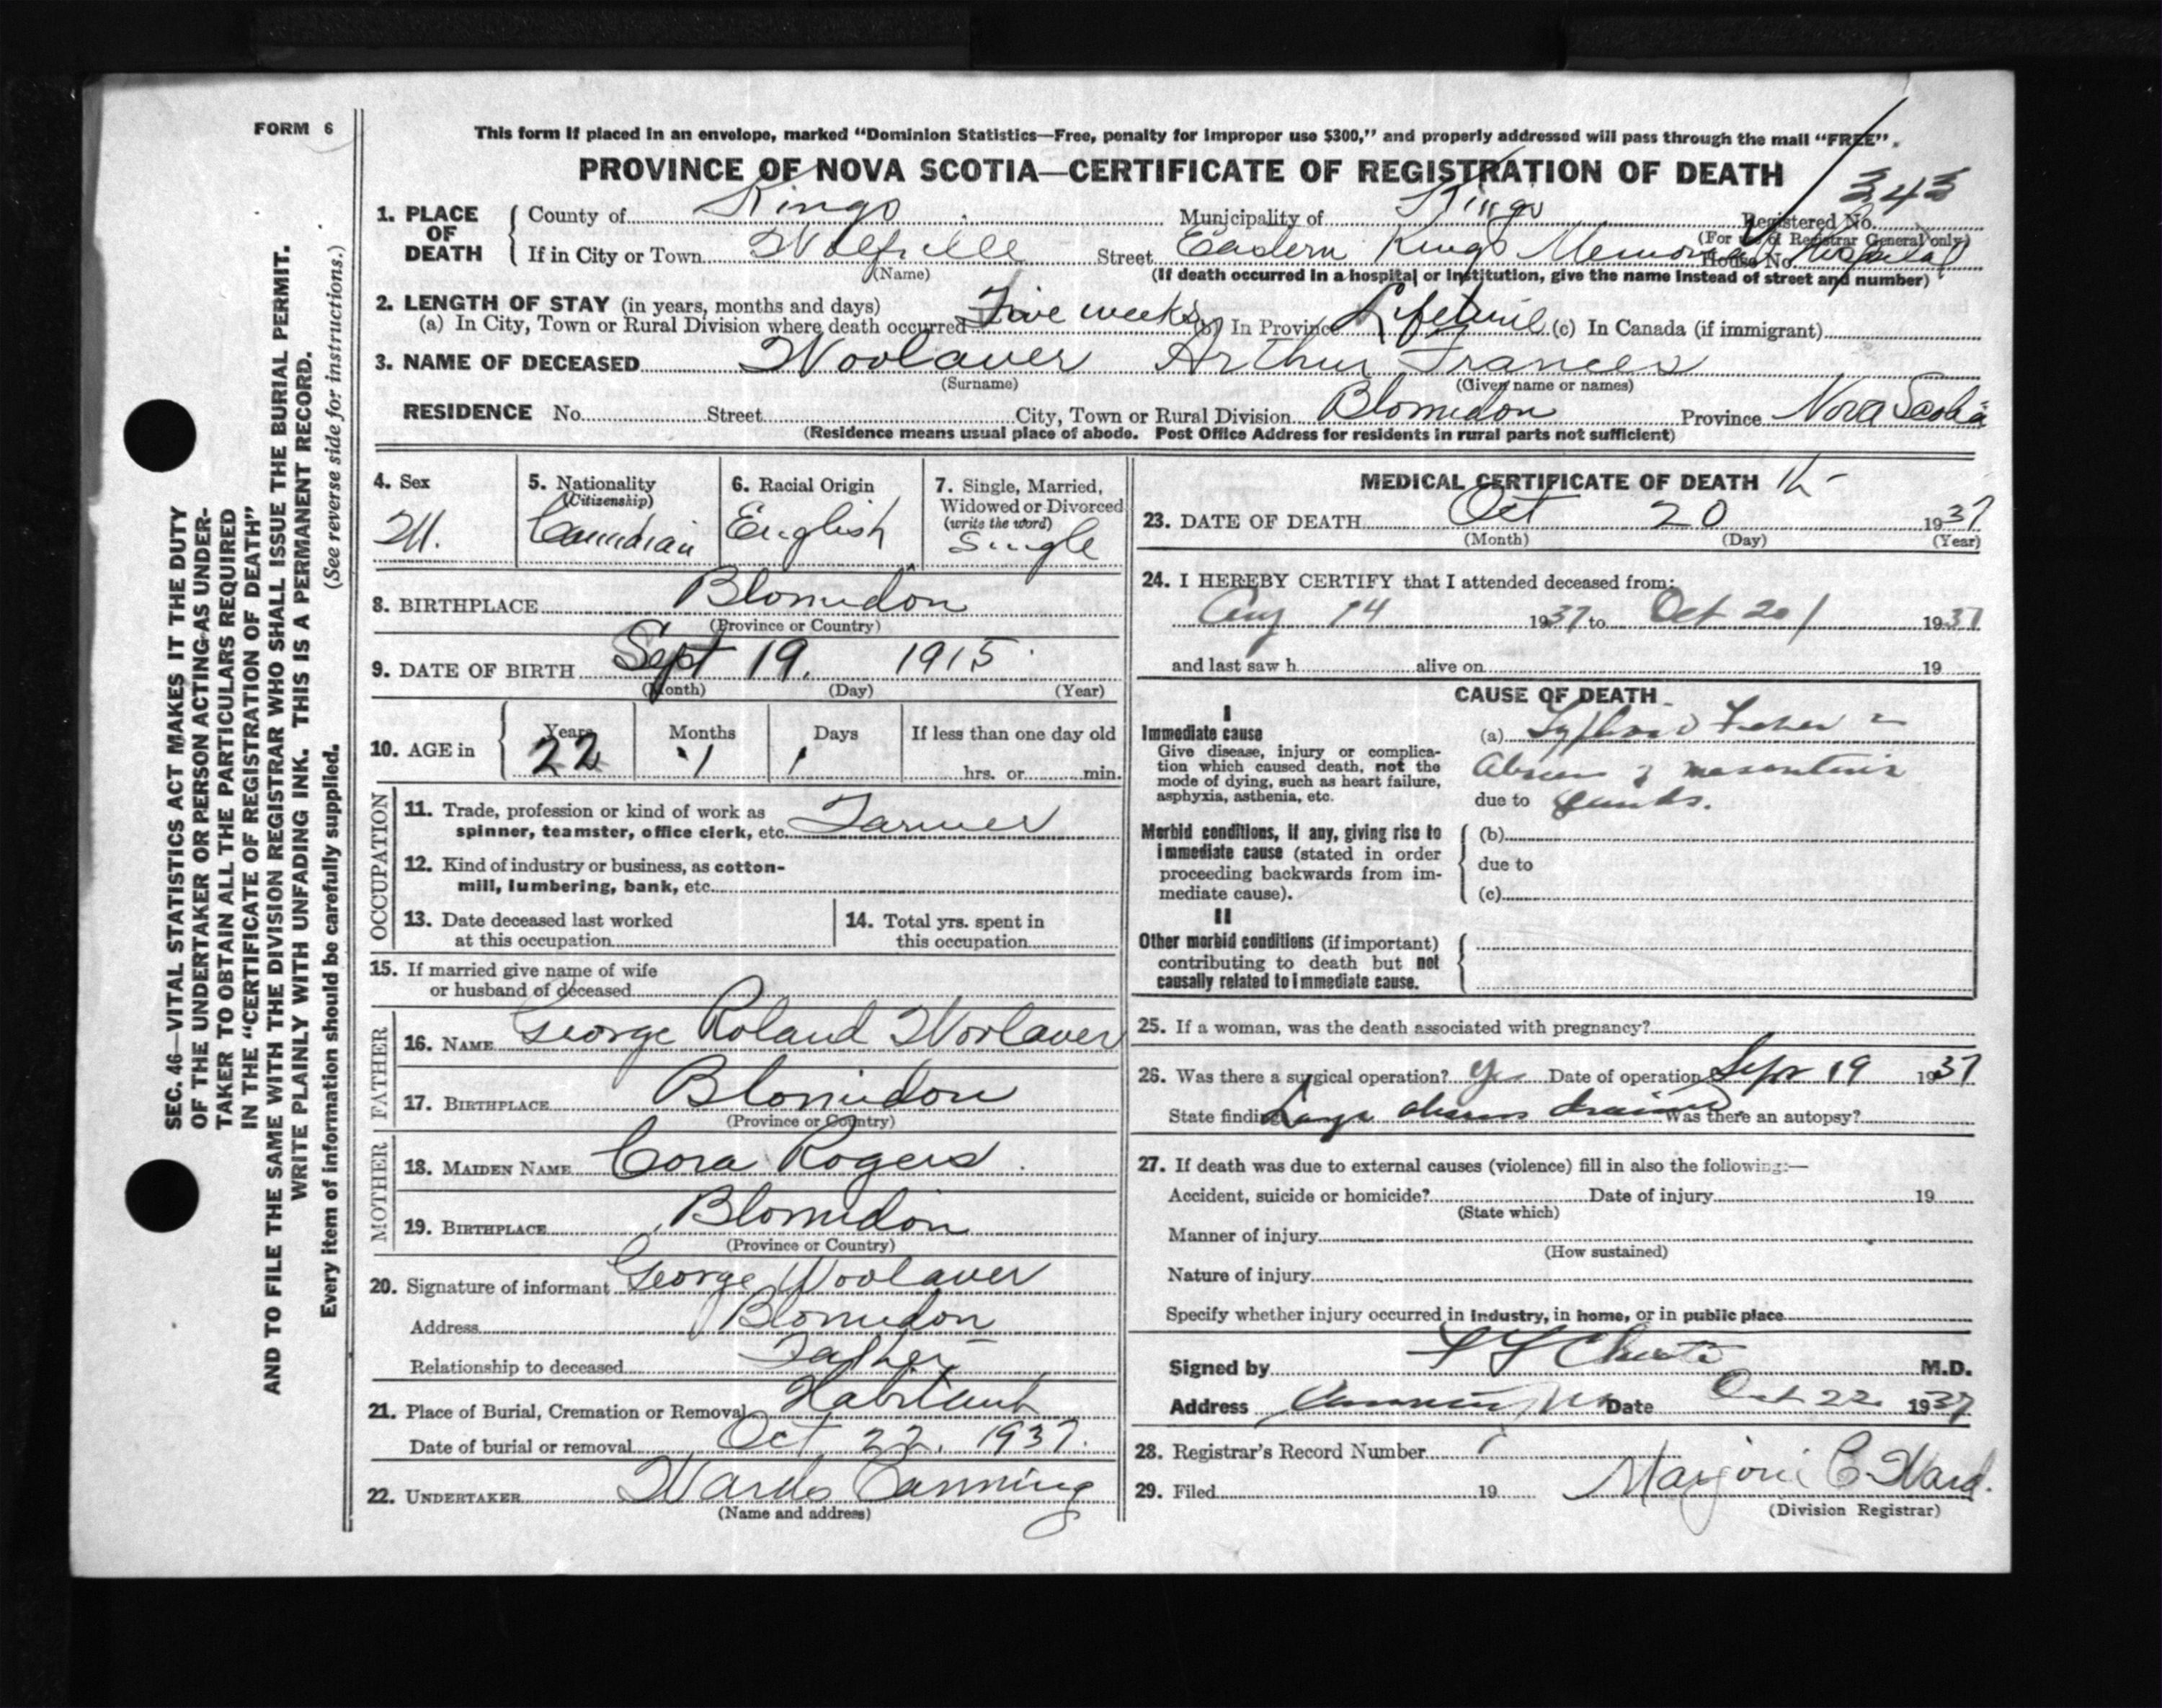 FORM 6
This form if placed in an envelope, marked "Dominion Statistics—Free, penalty for improper use $300," and properly addressed will pass through the mail "FREE".
PROVINCE OF NOVA SCOTIA—CERTIFICATE OF REGISTRATION OF DEATH
343
1. PLACE OF DEATH
County of Kings Municipality of Kings Registered No.
(For use of Registrar General only)
If in City or Town Wolfville Street Eastern Kings Memorial Hospital House No.
(Name) (If death occurred in a hospital or institution, give the name instead of street and number)
2. LENGTH OF STAY (in years, months and days)
(a) In City, Town or Rural Division where death occurred Five weeks (b) In Province Lifetime (c) In Canada (if immigrant)
3. NAME OF DECEASED Woolaver Arthur Frances
(Surname) (Given name or names)
RESIDENCE No. Street City, Town or Rural Division Blomidon Province Nova Scotia
(Residence means usual place of abode. Post Office Address for residents in rural parts not sufficient)
4. Sex
M.
5. Nationality
(Citizenship)
Canadian
6. Racial Origin
English
7. Single, Married,
Widowed or Divorced
(write the word)
Single
8. BIRTHPLACE Blomidon
(Province or Country)
9. DATE OF BIRTH Sept 19. 1915
(Month) (Day) (Year)
10. AGE in Years Months Days If less than one day old
22 1 1 hrs. or min.
OCCUPATION
11. Trade, profession or kind of work as
spinner, teamster, office clerk, etc. Farmer
12. Kind of industry or business, as cotton-
mill, lumbering, bank, etc.
13. Date deceased last worked
at this occupation
14. Total yrs. spent in
this occupation
15. If married give name of wife
or husband of deceased
FATHER
16. NAME George Roland Woolaver
17. BIRTHPLACE Blomidon
(Province or Country)
MOTHER
18. MAIDEN NAME Cora Rogers
19. BIRTHPLACE Blomidon
(Province or Country)
20. Signature of informant George Woolaver
Address Blomidon
Relationship to deceased Father
21. Place of Burial, Cremation or Removal Habitant
Date of burial or removal Oct 22. 1937.
22. UNDERTAKER Wards Canning
(Name and address)
MEDICAL CERTIFICATE OF DEATH
23. DATE OF DEATH Oct 20 1937
(Month) (Day) (Year)
24. I HEREBY CERTIFY that I attended deceased from:
Aug 14 1937 to Oct 20 1937
and last saw h alive on 19
CAUSE OF DEATH
I
Immediate cause
Give disease, injury or complica-
tion which caused death, not the
mode of dying, such as heart failure,
asphyxia, asthenia, etc.
(a) Typhoid Fever
Abscess of mesenteric
due to glands.
Morbid conditions, if any, giving rise to
immediate cause (stated in order
proceeding backwards from im-
mediate cause).
(b)
due to
(c)
II
Other morbid conditions (if important)
contributing to death but not
causally related to immediate cause.
25. If a woman, was the death associated with pregnancy?
26. Was there a surgical operation? Yes Date of operation Sept 19 1937
State findings Large abscess drained Was there an autopsy?
27. If death was due to external causes (violence) fill in also the following:—
Accident, suicide or homicide? Date of injury 19
(State which)
Manner of injury
(How sustained)
Nature of injury
Specify whether injury occurred in industry, in home, or in public place
Signed by M.D.
Address Date Oct 22 1937
28. Registrar's Record Number
29. Filed 19 Marjorie C. Ward.
(Division Registrar)
SEC. 46—VITAL STATISTICS ACT MAKES IT THE DUTY
OF THE UNDERTAKER OR PERSON ACTING AS UNDER-
TAKER TO OBTAIN ALL THE PARTICULARS REQUIRED
IN THE "CERTIFICATE OF REGISTRATION OF DEATH"
AND TO FILE THE SAME WITH THE DIVISION REGISTRAR WHO SHALL ISSUE THE BURIAL PERMIT.
WRITE PLAINLY WITH UNFADING INK. THIS IS A PERMANENT RECORD.
Every item of information should be carefully supplied. (See reverse side for instructions.)